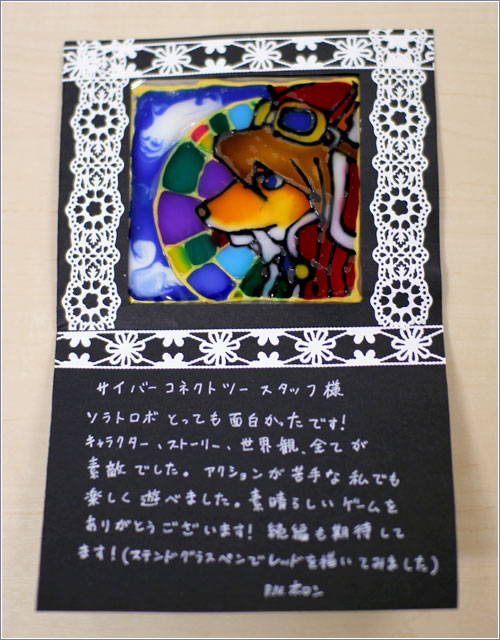 サイバーコネクトツー スタッフ様
ソラトロボ とっても面白かったです!
キャラクター、ストーリー、世界観、全てが
素敵でした。アクションが苦手な私でも
楽しく遊べました。素晴らしいゲームを
ありがとうございます! 続編も期待して
ます!(ステンドグラスペンでレッドを描いてみました)
P.N.ホロン